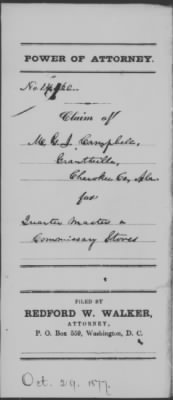 POWER OF ATTORNEY.
Claim of
Mr. G. J. Campbell,
Cherokee Co, Ala.
for
Quarter Master &
Commissary Stores
FILED BY
REDFORD W. WALKER,
ATTORNEY,
P. O. Box 559, Washington, D. C.
Oct. 29. 1877.